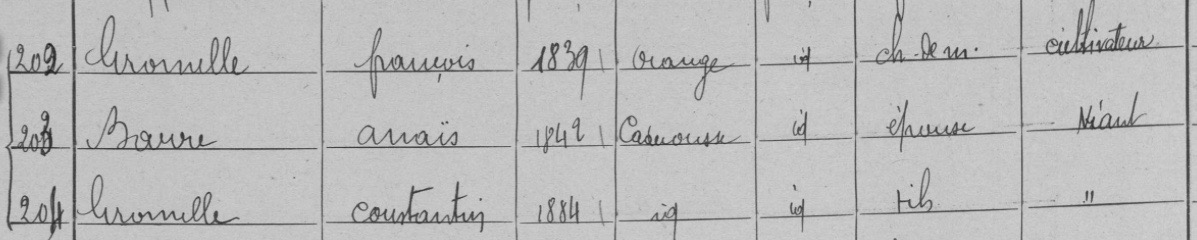 202 Gromelle françois 1839 Orange id ch. de m. cultivateur
203 Bavre anaïs 1842 Caderousse id épouse Néant
204 Gromelle constantin 1884 id id fils "